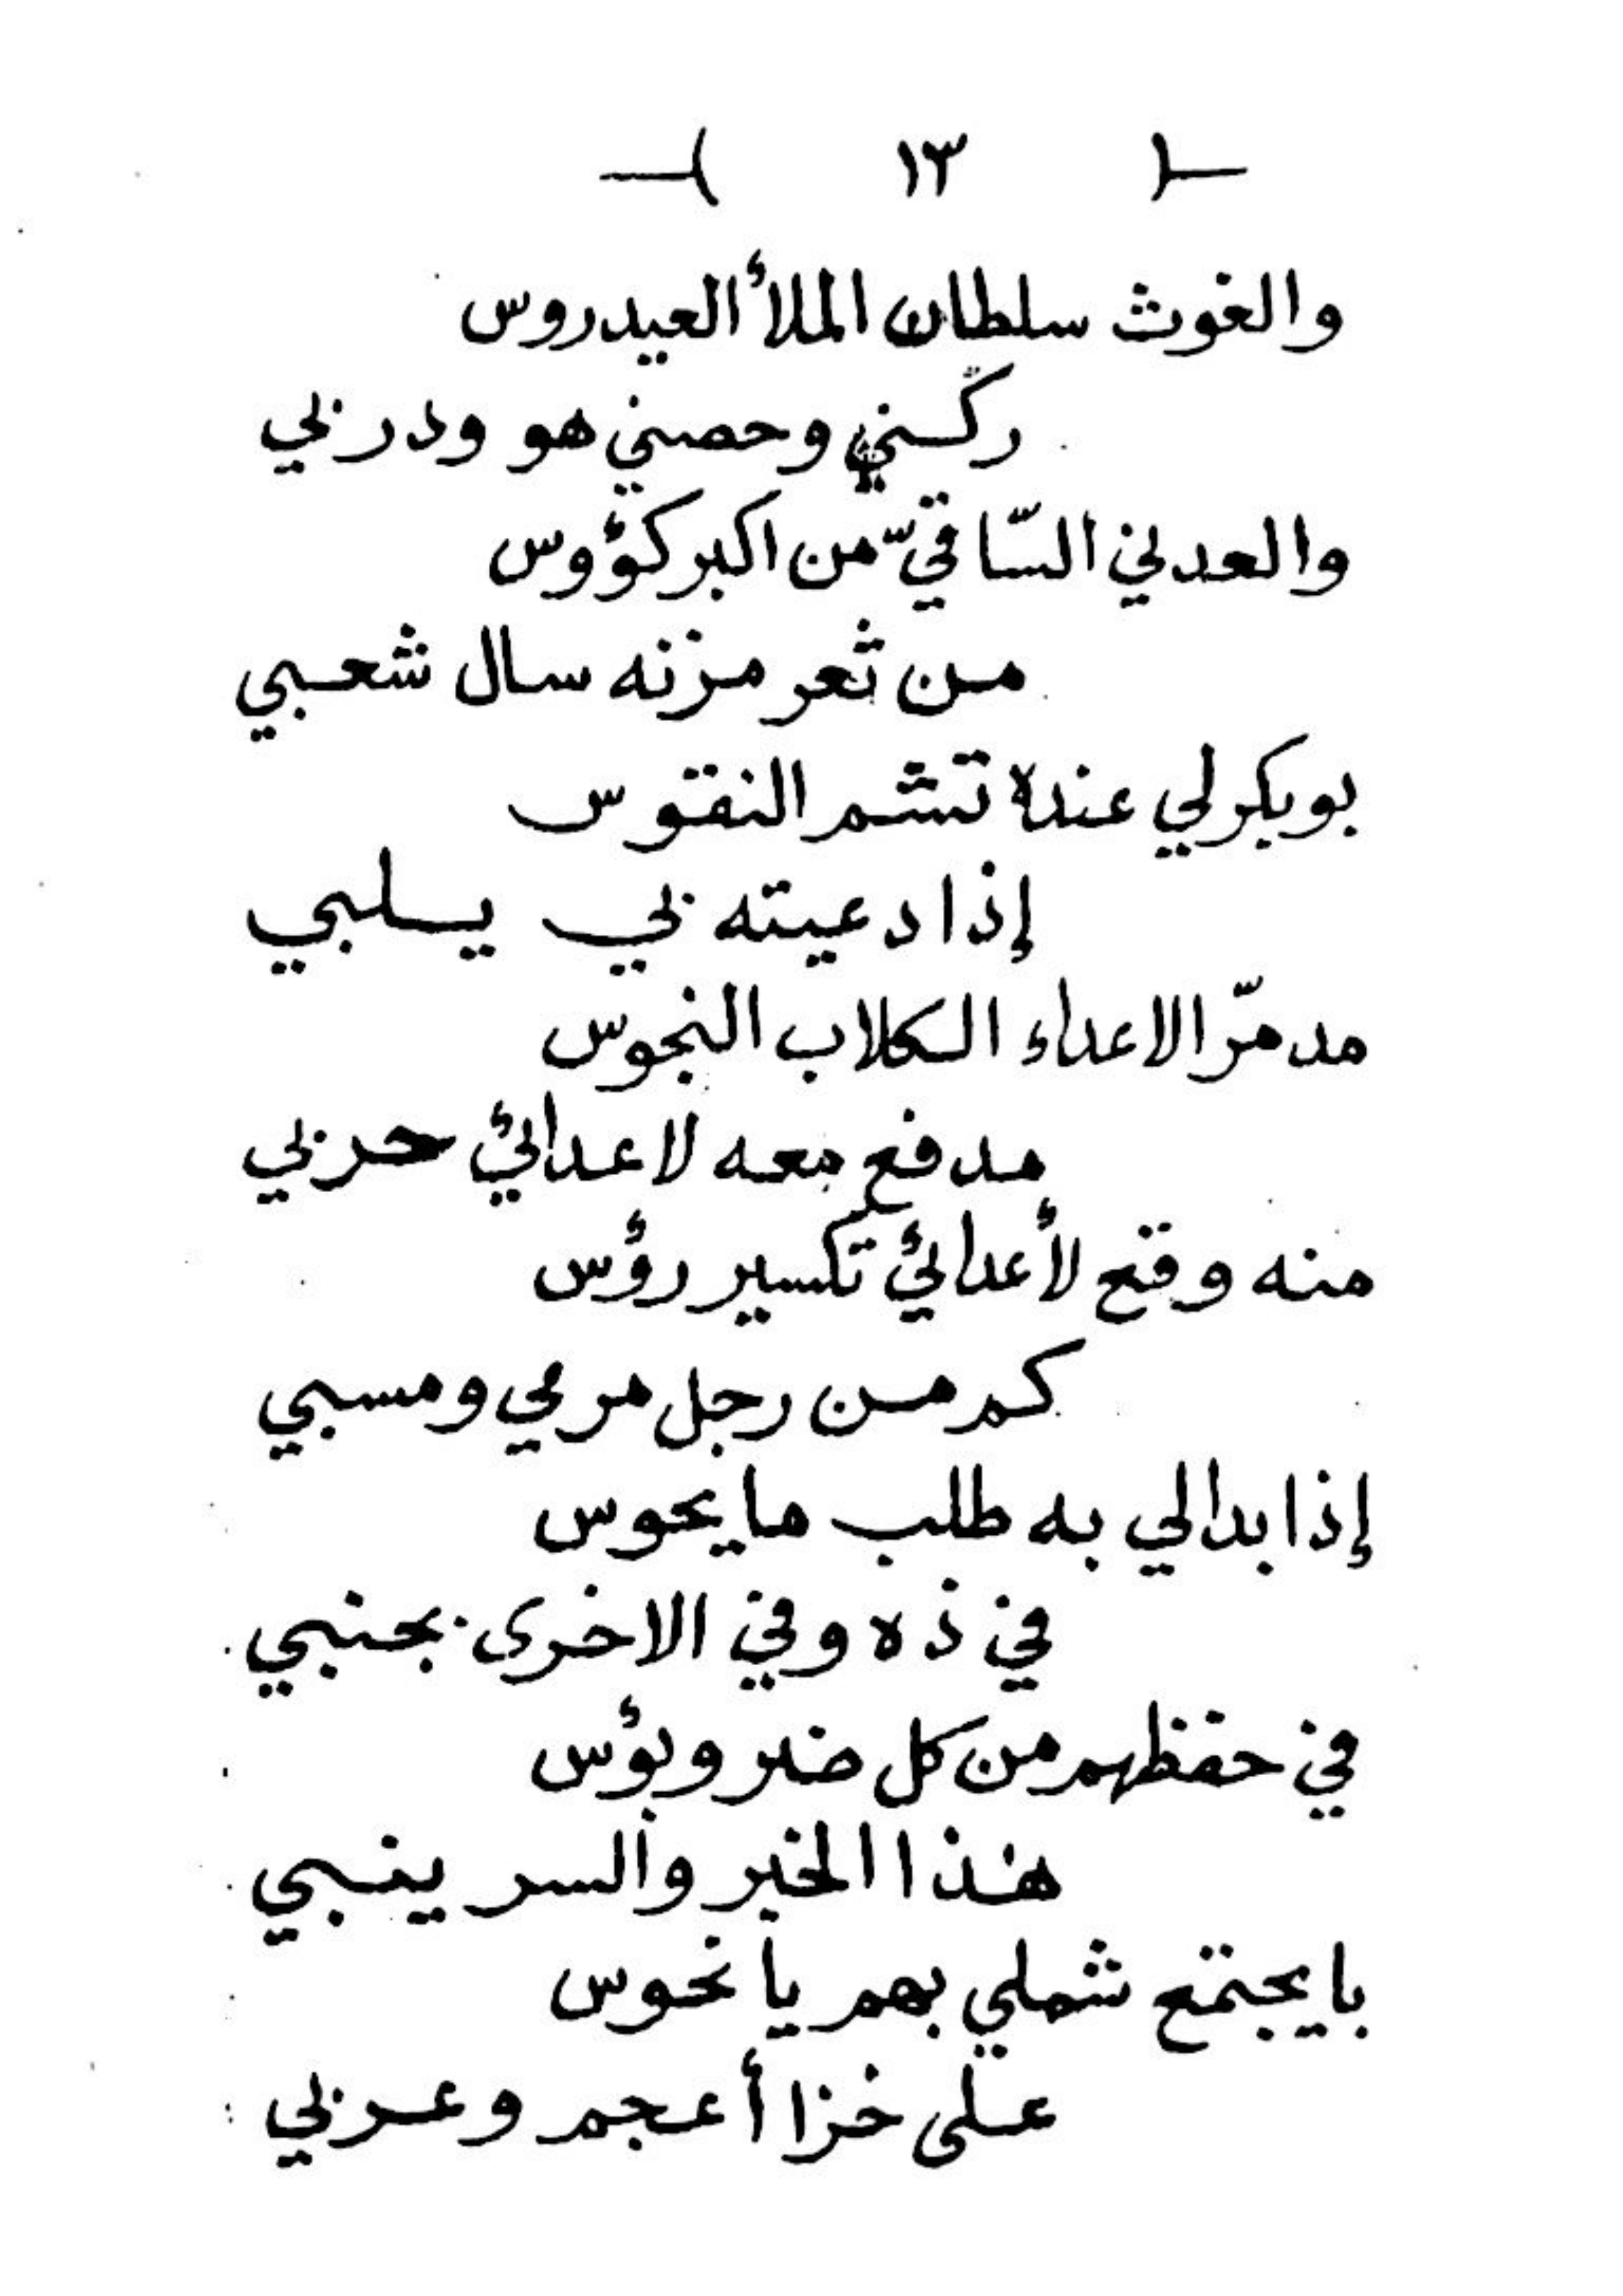 ١٣
والغوث سلطان الملأ العيدروس
ركني وحصني هو ودربي
والعدني السّاقيّ من اكبر كؤوس
من ثعر مزنه سال شعبي
بوبكر لي عنده تشم النقوس
إذا دعيته بي يسلبي
مدمّر الاعداء الكلاب النجوس
مدفع معه لاعدائي حربي
منه وقع لأعدائي تكسير رؤس
كم من رجل مرمي ومسبي
إذا بدالي به طلب ما يحوس
في ذه وفي الاخرى بجنبي
في حفظهم من كل ضر وبؤس
هذا الخبر والسر ينبي
با يجتمع شملي بهم يا نحوس
على خزا أعجم وعربي